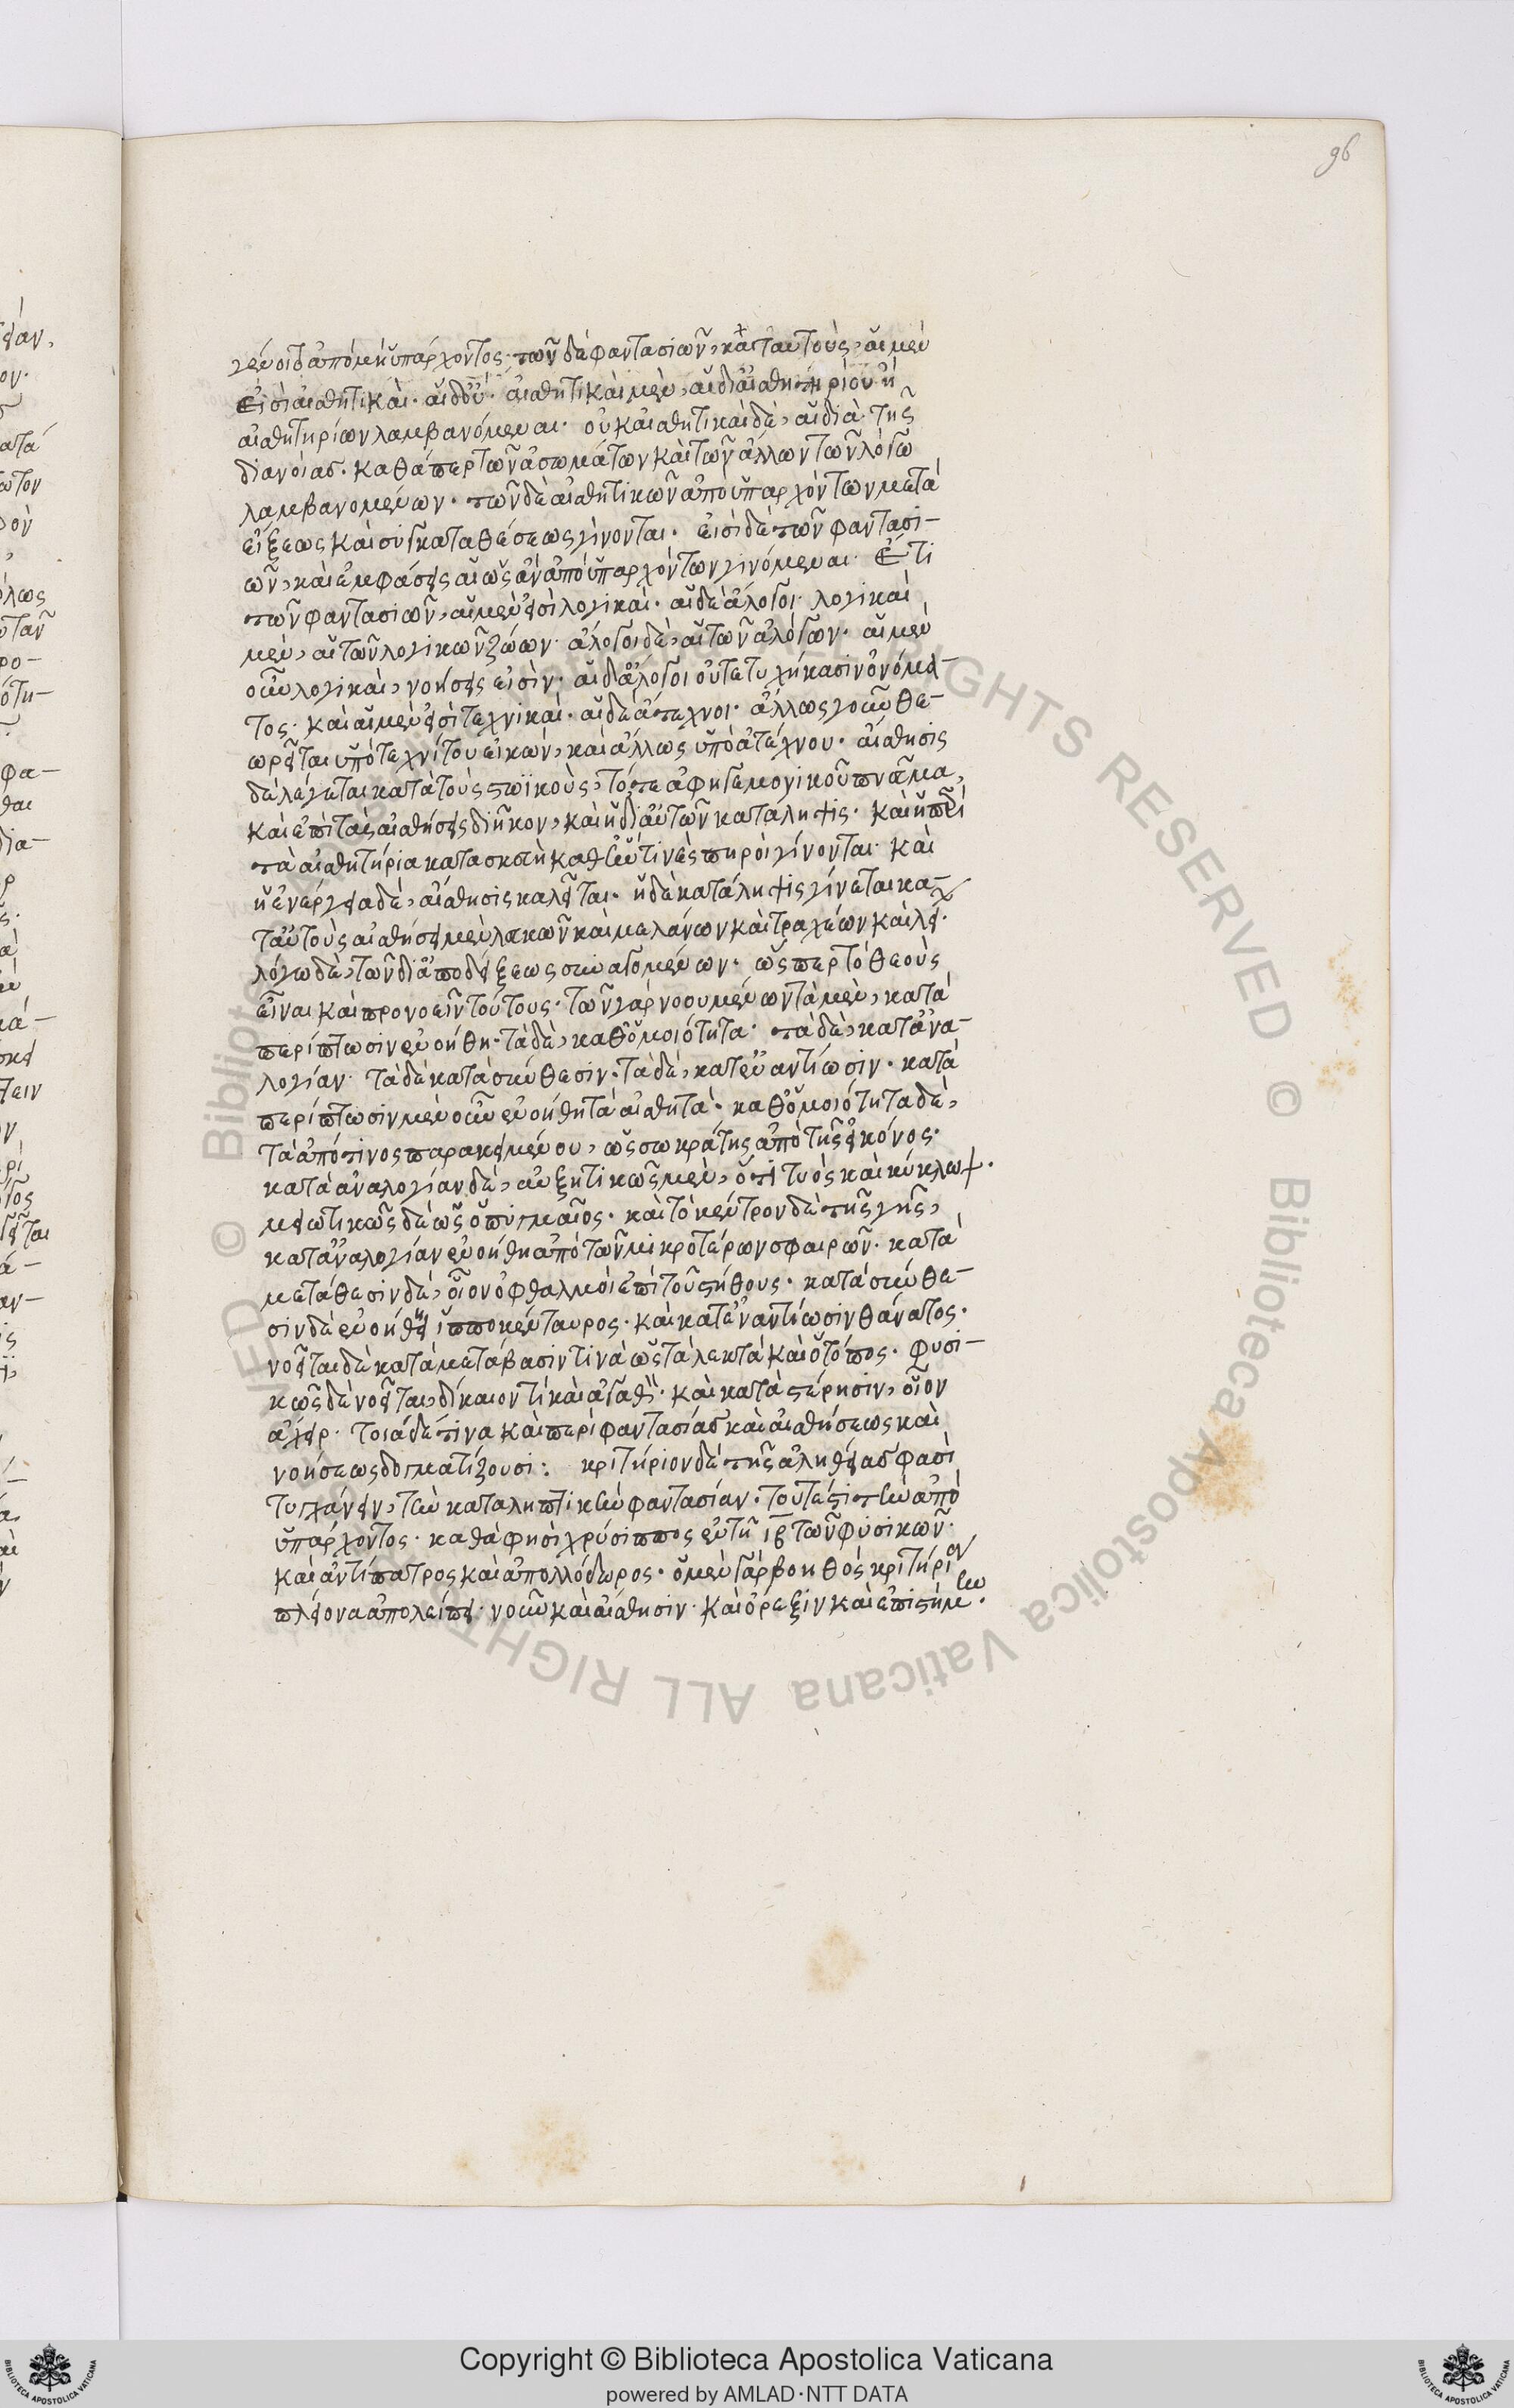 96
γένοιτ' ἀπὸ μὴ ὑπάρχοντος· τῶν δὲ φαντασιῶν, κατ' αὐτοὺς, αἱ μὲν
εἰσὶ αἰσθητικαὶ· αἱ δ' οὔ· αἰσθητικαὶ μὲν, αἱ δι' αἰσθητηρίου ἢ
αἰσθητηρίων λαμβανόμεναι· οὐκ αἰσθητικαὶ δὲ, αἱ διὰ τῆς
διανοίας· καθάπερ τῶν ἀσωμάτων καὶ τῶν ἄλλων τῶν λόγω
λαμβανομένων· τῶν δὲ αἰσθητικῶν ἀπὸ ὑπαρχόντων μετὰ
εἴξεως καὶ συγκαταθέσεως γίνονται· εἰσὶ δὲ τῶν φαντασι-
ῶν, καὶ ἐμφάσεις αἱ ὡς ἂν ἀπὸ ὑπαρχόντων γινόμεναι· Ἔτι
τῶν φαντασιῶν, αἱ μὲν εἰσὶ λογικαὶ· αἱ δὲ ἄλογοι· λογικαὶ
μὲν, αἱ τῶν λογικῶν ζώων· ἄλογοι δὲ, αἱ τῶν ἀλόγων· αἱ μὲν
οὖν λογικαὶ, νοήσεις εἰσίν· αἱ δ' ἄλογοι οὐ τετυχήκασιν ὀνόμα-
τος· καὶ αἱ μὲν εἰσὶ τεχνικαὶ· αἱ δὲ ἄτεχνοι· ἄλλως γοῦν θε-
ωρεῖται ὑπὸ τεχνίτου εἰκὼν, καὶ ἄλλως ὑπὸ ἀτέχνου· αἴσθησις
δὲ λέγεται κατὰ τοὺς στωϊκοὺς, τό τε ἀφ' ἡγεμονικοῦ πνεῦμα,
καὶ ἐπὶ τὰς αἰσθήσεις διῆκον, καὶ ἡ δι' αὐτῶν κατάληψις· καὶ ἡ περὶ
τὰ αἰσθητήρια κατασκευὴ καθ' ἣν τινὲς πηροὶ γίνονται· καὶ
ἡ ἐνέργεια δὲ, αἴσθησις καλεῖται· ἡ δὲ κατάληψις γίνεται κα-
τ' αὐτοὺς αἰσθήσει μὲν λευκῶν καὶ μελάνων καὶ τραχέων καὶ λεί·
λόγω δὲ, τῶν δι' ἀποδείξεως συναγομένων· ὥσπερ τὸ θεοὺς
εἶναι καὶ προνοεῖν τούτους· τῶν γὰρ νοουμένων τὰ μὲν, κατὰ
περίπτωσιν ἐνοήθη· τὰ δὲ, καθ' ὁμοιότητα· τὰ δὲ, κατ' ἀνα-
λογίαν· τὰ δὲ κατὰ σύνθεσιν· τὰ δὲ, κατ' ἐναντίωσιν· κατὰ
περίπτωσιν μὲν οὖν ἐνοήθη τὰ αἰσθητὰ· καθ' ὁμοιότητα δὲ,
τὰ ἀπό τινος παρακειμένου, ὡς σωκράτης ἀπὸ τῆς εἰκόνος·
κατὰ ἀναλογίαν δὲ, αὐξητικῶς μὲν, ὁ τιτυὸς καὶ κύκλωψ·
μειωτικῶς δὲ ὡς ὁ πυγμαῖος· καὶ τὸ κέντρον δὲ τῆς γῆς,
κατ' ἀναλογίαν ἐνοήθη ἀπὸ τῶν μικροτέρων σφαιρῶν· κατὰ
μετάθεσιν δὲ, οἷον ὀφθαλμοὶ ἐπὶ τοῦ στήθους· κατὰ σύνθε-
σιν δὲ ἐνοήθη ἱπποκένταυρος· καὶ κατ' ἐναντίωσιν θάνατος·
νοεῖται δὲ κατὰ μετάβασιν τινὰ ὡς τὰ λεκτὰ καὶ ὁ τόπος· φυσι-
κῶς δὲ νοεῖται, δίκαιόν τι καὶ ἀγαθὸν· καὶ κατὰ στέρησιν, οἷον
ἄχειρ· τοιάδε τινα καὶ περὶ φαντασίας καὶ αἰσθήσεως καὶ
νοήσεως δογματίζουσι: κριτήριον δὲ τῆς ἀληθείας φασὶ
τυγχάνειν, τὴν καταληπτικὴν φαντασίαν· τουτέστι τὴν ἀπὸ
ὑπάρχοντος· καθὰ φησὶ χρύσιππος ἐν τῆ ιβ τῶν φυσικῶν·
καὶ ἀντίπατρος καὶ ἀπολλόδωρος· ὁ μὲν γὰρ βοηθὸς κριτήριον
πλείονα ἀπολείπει· νοῦν καὶ αἴσθησιν· καὶ ὄρεξιν καὶ ἐπιστήμην·
Copyright © Biblioteca Apostolica Vaticana
powered by AMLAD·NTT DATA